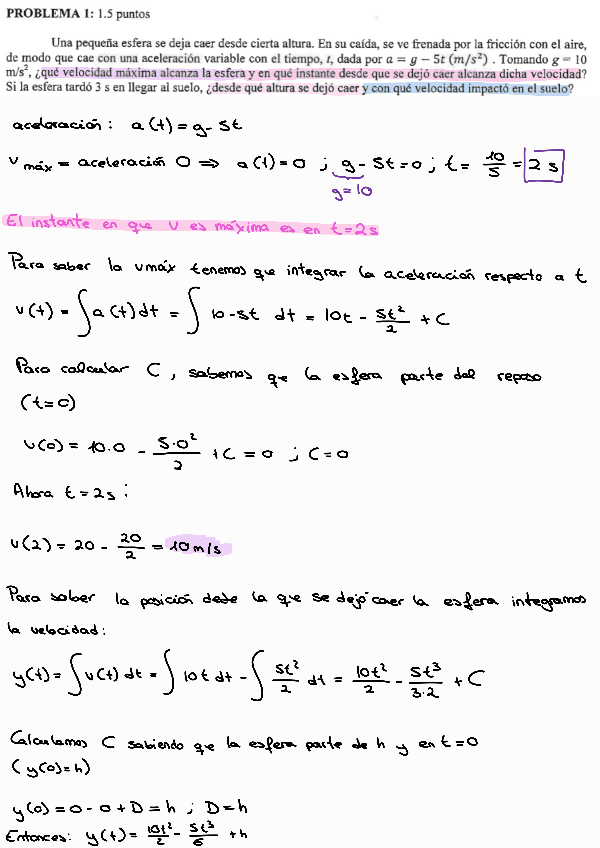 PROBLEMA 1: 1.5 puntos
Una pequeña esfera se deja caer desde cierta altura. En su caída, se ve frenada por la fricción con el aire,
de modo que cae con una aceleración variable con el tiempo, t, dada por a = g − 5t (m/s²) . Tomando g = 10
m/s², ¿qué velocidad máxima alcanza la esfera y en qué instante desde que se dejó caer alcanza dicha velocidad?
Si la esfera tardó 3 s en llegar al suelo, ¿desde qué altura se dejó caer y con qué velocidad impactó en el suelo?
aceleración: a(t) = g - 5t
v máx = aceleración 0 ⇒ a(t) = 0 ; g - 5t = 0 ; t = 10/5 = 2 s
g = 10
El instante en que v es máxima es en t = 2s
Para saber la vmáx tenemos que integrar la aceleración respecto a t
v(t) = ∫ a(t) dt = ∫ 10 - 5t dt = 10t - 5t²/2 + C
Para calcular C, sabemos que la esfera parte del reposo
(t=0)
v(0) = 10.0 - 5·0²/2 + C = 0 ; C = 0
Ahora t = 2s :
v(2) = 20 - 20/2 = 10 m/s
Para saber la posición desde la que se dejó caer la esfera integramos
la velocidad:
y(t) = ∫ v(t) dt = ∫ 10t dt - ∫ 5t²/2 dt = 10t²/2 - 5t³/3·2 + C
Calculamos C sabiendo que la esfera parte de h y en t=0
(y(0)=h)
y(0) = 0 - 0 + D = h ; D = h
Entonces: y(t) = 10t²/2 - 5t³/6 + h